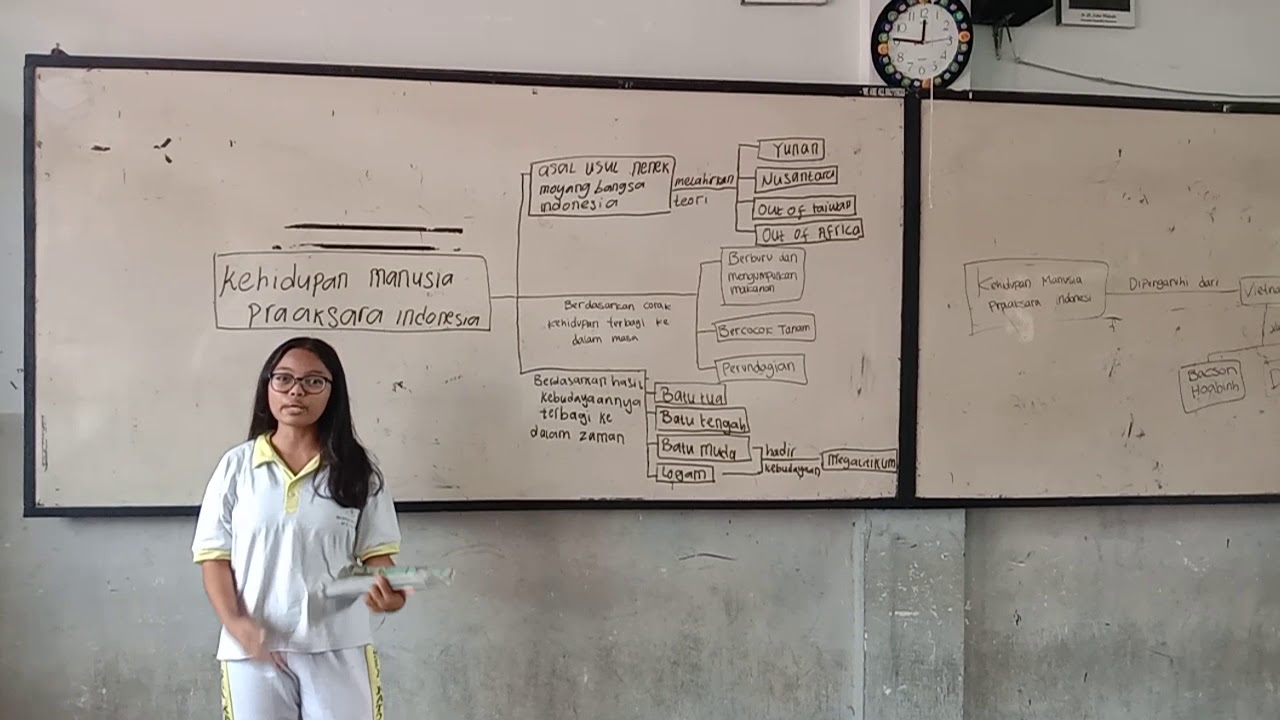 Kehidupan manusia
Praaksara indonesia
asal usul nenek
moyang bangsa
indonesia
melahirkan
teori
Yunan
Nusantara
Out of taiwan
Out of Africa
Berdasarkan corak
kehidupan terbagi ke
dalam masa
Berburu dan
mengumpulkan
makanan
Bercocok Tanam
Perundagian
Berdasarkan hasil
kebudayaannya
terbagi ke
dalam zaman
Batu tua
Batu tengah
Batu muda
Logam
hadir
kebudayaan
Megalitikum
Kehidupan Manusia
Praaksara indonesi
Dipengaruhi dari
Vietna
Bacson
Hoabinh
12
1
2
3
4
5
6
7
8
9
10
11